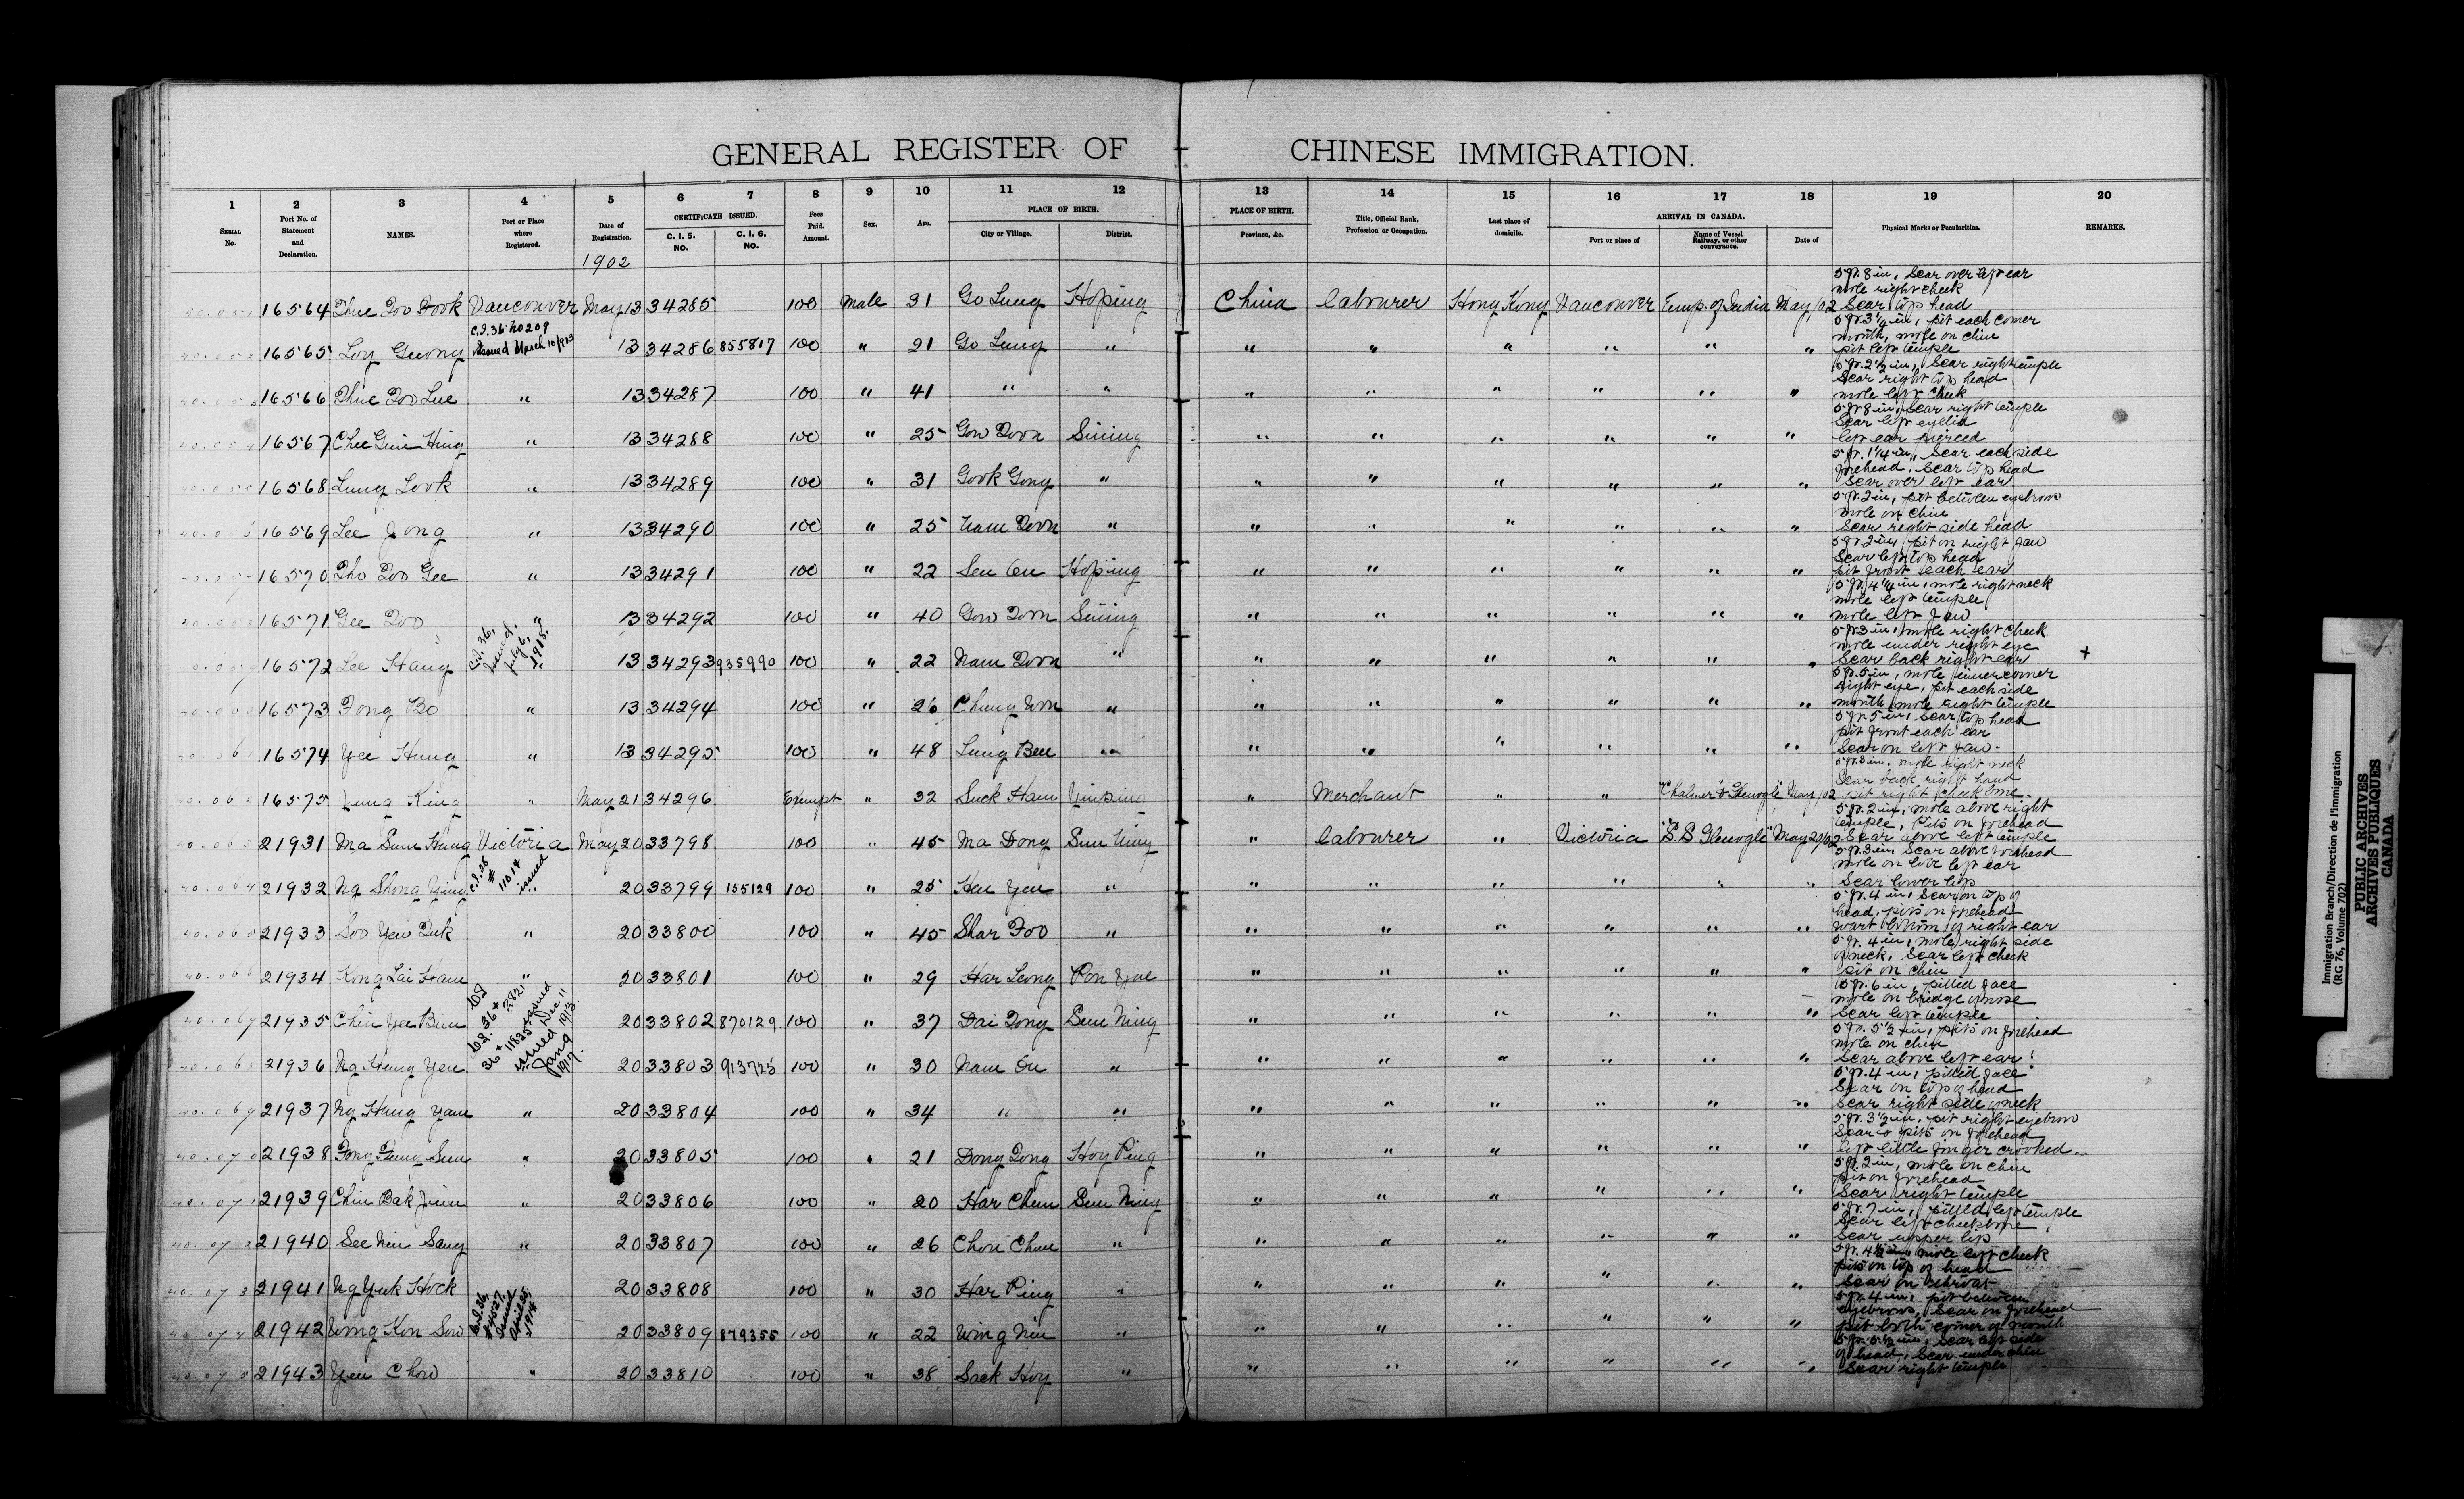 GENERAL REGISTER OF CHINESE IMMIGRATION.
1 2 3 4 5 6 7 8 9 10 11 12 13 14 15 16 17 18 19 20
SERIAL No. Port No. of Statement and Declaration. NAMES. Port or Place where Registered. Date of Registration. CERTIFICATE ISSUED. C. I. 5. NO. C. I. 6. NO. Fees Paid. Amount. Sex. Age. PLACE OF BIRTH. City or Village. District. PLACE OF BIRTH. Province, &c. Title, Official Rank, Profession or Occupation. Last place of domicile. ARRIVAL IN CANADA. Port or place of Name of Vessel Railway, or other conveyance. Date of Physical Marks or Peculiarities. REMARKS.
1902
16564 Vancouver May 13 34285 100 Male 31 Go Lung Hoping China labourer Hong Kong Vancouver Emp. of India May /02 5 ft. 8 in, Scar over left ear
mole right cheek
Scar top head
16565 Loy Guong C.I.36 No209 issued March 10/913 13 34286 855817 100 " 21 Go Lung " " " " " " " 5 ft. 3 1/4 in, pit each corner
mouth, mole on chin
pit left temple
16566 " 13 34287 100 " 41 " " " " " " " " 5 ft. 2 1/2 in, Scar right temple
Scar right top head
mole left cheek
16567 Chee Guin Hing " 13 34288 100 " 25 Gow Doon Sining " " " " " " 5 ft 8 in, Scar right temple
Scar left eyelid
left ear pierced
16568 Lung Look " 13 34289 100 " 31 Gook Gong " " " " " " " 5 ft. 1 1/4 in, Scar each side
forehead, Scar top head
Scar over left ear
16569 Lee Jong " 13 34290 100 " 25 Nam Doon " " " " " " " 5 ft. 2 in, pit between eyebrows
mole on chin
Scar right side head
16570 13 34291 100 " 22 Hoping " " " " " " 5 ft. 2 in, pit on right jaw
Scar left top head
pit front each ear
16571 Gee Doo 13 34292 100 " 40 Gow Doon Sining " " " " " " 5 ft. 4 1/4 in, mole right neck
mole left temple
mole left jaw
16572 Lee Hang C.I.36, issued, July 6, 1915. 13 34293 935990 100 " 22 Nam Doon " " " " " " " 5 ft 3 in, mole right cheek
mole under right eye
Scar back right ear +
16573 Fong Bo " 13 34294 100 " 26 Chung Won " " " " " " " 5 ft. 5 in, mole inner corner
right eye, pit each side
mouth, mole right temple
16574 Yee Hung " 13 34295 100 " 48 Lung Ben " " " " " " " 5 ft. 5 in, Scar top head
pit front each ear
Scar on left jaw.
16575 Jung King " May 21 34296 Exempt " 32 Suck Ham Yinping " Merchant " " May /02 5 ft. 3 in. mole right neck
Scar back right hand
pit right cheek bone.
21931 Ma Sum Hung Victoria May 20 33798 100 " 45 Ma Dong Sun Ning " labourer " Victoria "S.S Glenogle" May 20/02 5 ft. 2 in, mole above right
temple, pits on forehead
Scar above left temple
21932 Ng Shong Ying issued 20 33799 155129 100 " 25 Hen Yen " " " " " " " 5 ft. 3 in, Scar above forehead
mole on lobe left ear
Scar lower lip
21933 Soo Yew Duk " 20 33800 100 " 45 Shar Foo " " " " " " " 5 ft. 4 in, Scar on top of
head, pits on forehead
wart bottom of right ear
21934 Kong Lai Ham " 20 33801 100 " 29 Har Leong Pon Yue " " " " " " 5 ft. 4 in, mole right side
of neck, Scar left cheek
pit on chin
21935 Chin Yee Bin 20 33802 870129 100 " 37 Dai Dong Sun Ning " " " " " " 5 ft. 6 in, pitted face
mole on bridge of nose
Scar left temple
21936 Ng Heung Yen 20 33803 913725 100 " 30 Nam On " " " " " " " 5 ft. 5 1/2 in, pits on forehead
mole on chin
Scar above left ear
21937 Ng Hang Yam " 20 33804 100 " 34 " " " " " " " " 5 ft. 4 in, pitted face
Scar on top of head
Scar right side of neck
21938 " 20 33805 100 " 21 Dong Dong Hoy Ping " " " " " " 5 ft. 3 1/2 in. pit right eyebrow
Scar & pits on forehead
left little finger crooked
21939 Chin Bak " 20 33806 100 " 20 Har Chun Sun Ning " " " " " " 5 ft. 2 in, mole on chin
pit on forehead
Scar right temple
21940 See Nin Sang " 20 33807 100 " 26 Chon Chun " " " " " " " 5 ft. 7 in, pitted left temple
Scar left cheekbone
Scar upper lip
21941 Ng Yuk Hock 20 33808 100 " 30 Har Ping " " " " " " " 5 ft. 4 1/2 in, mole left cheek
pits on top of head
Scar on throat
21942 Wong Kon Sow 20 33809 879355 100 " 22 Wing Nin " " " " " " " 5 ft. 4 in, pit between
eyebrows, Scar on forehead
pit both corner of mouth
21943 Yen Chow " 20 33810 100 " 38 Sack Hoy " " " " " " " Scar left side
of head, Scar under chin
Scar right temple
Immigration Branch/Direction de l'immigration
(RG 76, Volume 702)
PUBLIC ARCHIVES
ARCHIVES PUBLIQUES
CANADA